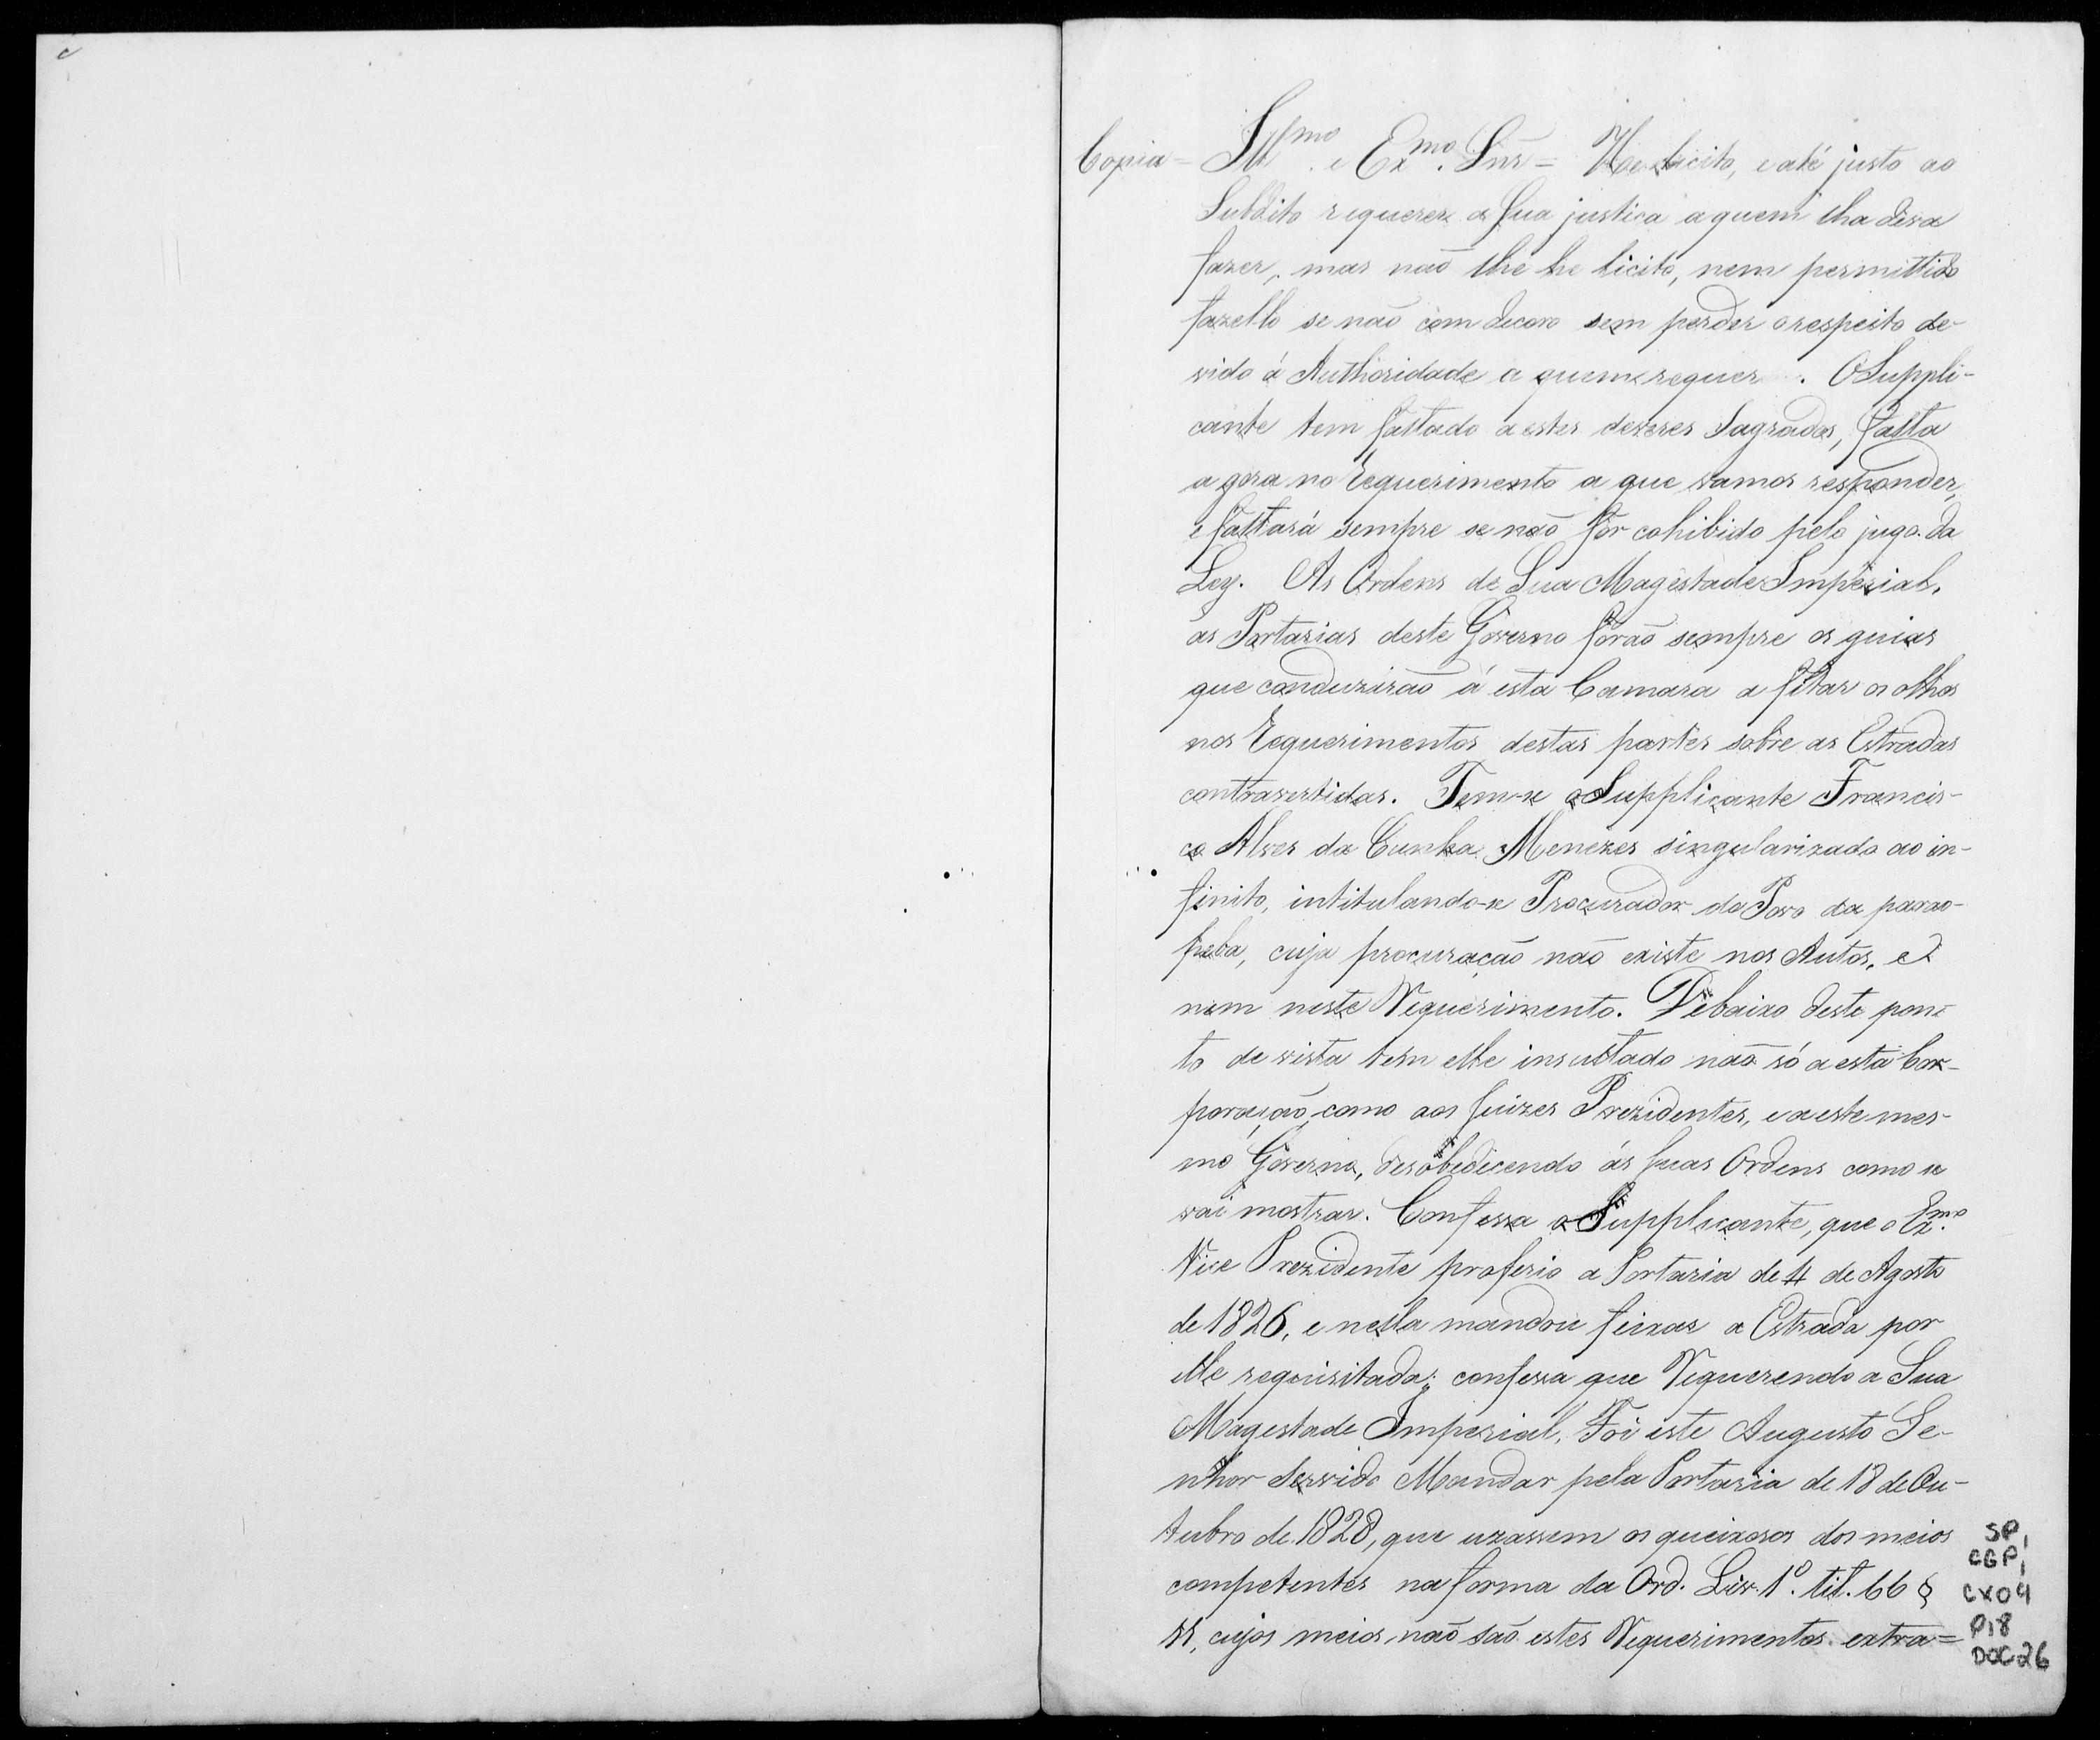 Copia = Ill.mo e Ex.mo Snr = He licito, e até justo ao
Subdito requerer a sua justiça a quem lha deva
fazer, mas naõ lhe he licito, nem permittido
fazello se naõ com decoro sem perder o respeito de-
vido á Authoridade a quem requer. O Suppli-
cante tem faltado a estes deveres Sagrados, falta
agora no Requerimento a que vamos responder,
e faltará sempre se naõ for cohibido pelo jugo da
Ley. As Ordens de Sua Magestade Imperial,
as Portarias deste Governo foraõ sempre os guias
que conduziraõ á esta Camara a fitar os olhos
nos Requerimentos destas partes sobre as Estradas
contravertidas. Tem-se o Supplicante Francis-
co Alves da Cunha Menezes singularizado ao in-
finito, intitulando-se Procurador do Povo da parao-
peba, cuja procuraçaõ naõ existe nos Autos, e
nem neste Requerimento. Debaixo deste pon-
to de vista tem elle insultado naõ só a esta Cor-
poraçaõ, como aos Juizes Prezidentes, e a este mes-
mo Governo, desobedicendo ás suas Ordens como se
vai mostrar. Confessa o Supplicante, que o Ex.mo
Vice Prezidente proferio a Portaria de 4 de Agosto
de 1826, e nella mandou feixar a Estrada por
elle requisitada; confessa que Requerendo a Sua
Magestade Imperial, Foi este Augusto Se-
nhor Servido Mandar pela Portaria de 18 de Ou-
tubro de 1828, que uzassem os queixosos dos meios
competentes na forma da Ord. Liv. 1º. tit. 66 §
11, cujos meios naõ saõ estes Requerimentos extra=
SP,
CGP,
CX04
P,8
DOC26